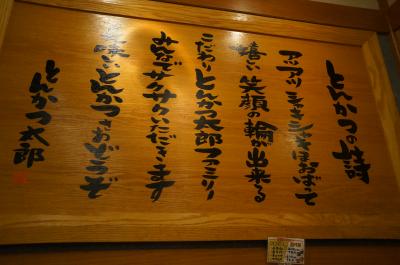 とんかつの詩
アツアツ シャキシャキほおばって
嬉しい笑顔の輪が出来る
こだわりとんかつ太郎ファミリー
みんなでサクサクいただきます
美味いとんかつさあどうぞ
とんかつ太郎